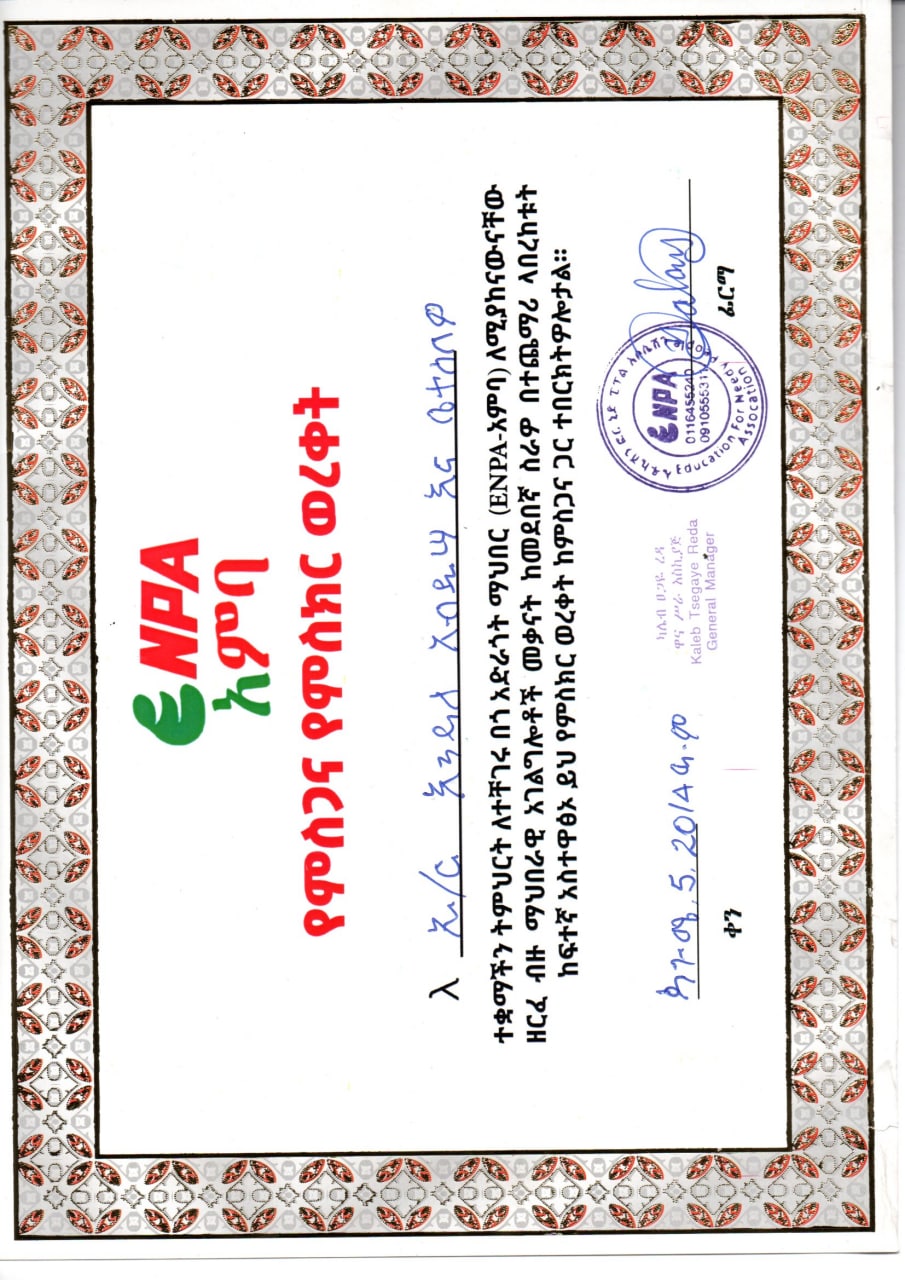 ENPA
አምባ
የምስጋና የምስክር ወረቀት
ለ ኢ/ር እንዳለ አብዱሣ እና ቤተሰበዎ
ተቋማችን ትምህርት ለተቸገሩ በጎ አድራጎት ማህበር (ENPA-አምባ) ለሚያከናውናቸው
ዘርፈ ብዙ ማህበራዊ አገልግሎቶች መቃናት ከመደበኛ ስራዎ በተጨማሪ ላበረከቱት
ከፍተኛ አስተዋፅኦ ይህ የምስክር ወረቀት ከምስጋና ጋር ተበርክትዎሎታል።
ጳጉሜ 5, 2014 ዓ.ም
ቀን
ካሌብ ፀጋዬ ረዳ
ዋና ሥራ አስኪያጅ
Kaleb Tsegaye Reda
General Manager
ኤዱኬሽን ፎር ኒድ ፒፕል አሶሴሽን
ENPA
0116455240
0910555311
Education For Needy People
Assocation
ፊርማ